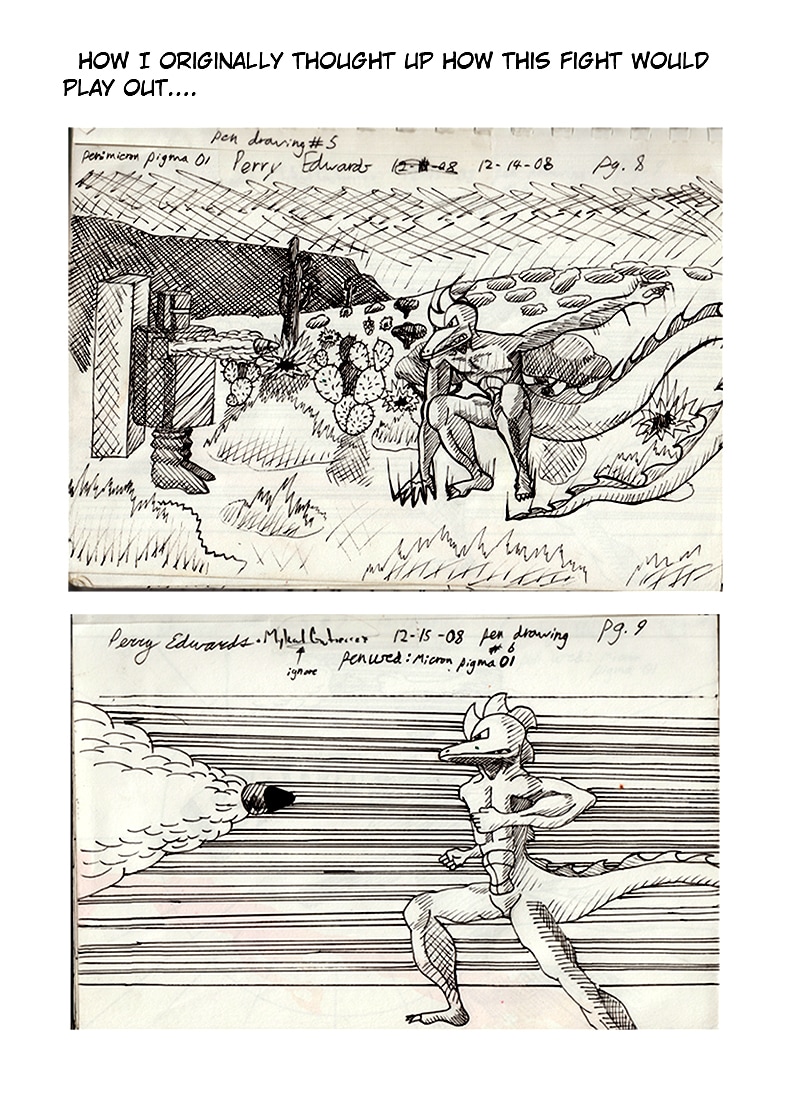 HOW I ORIGINALLY THOUGHT UP HOW THIS FIGHT WOULD
PLAY OUT....
pen drawing #5
pen:micron pigma 01 Perry Edwards 12-14-08 pg. 8
Perry Edwards 12-15-08 pen drawing Pg. 9
# 6
ignore pen used: Micron pigma 01